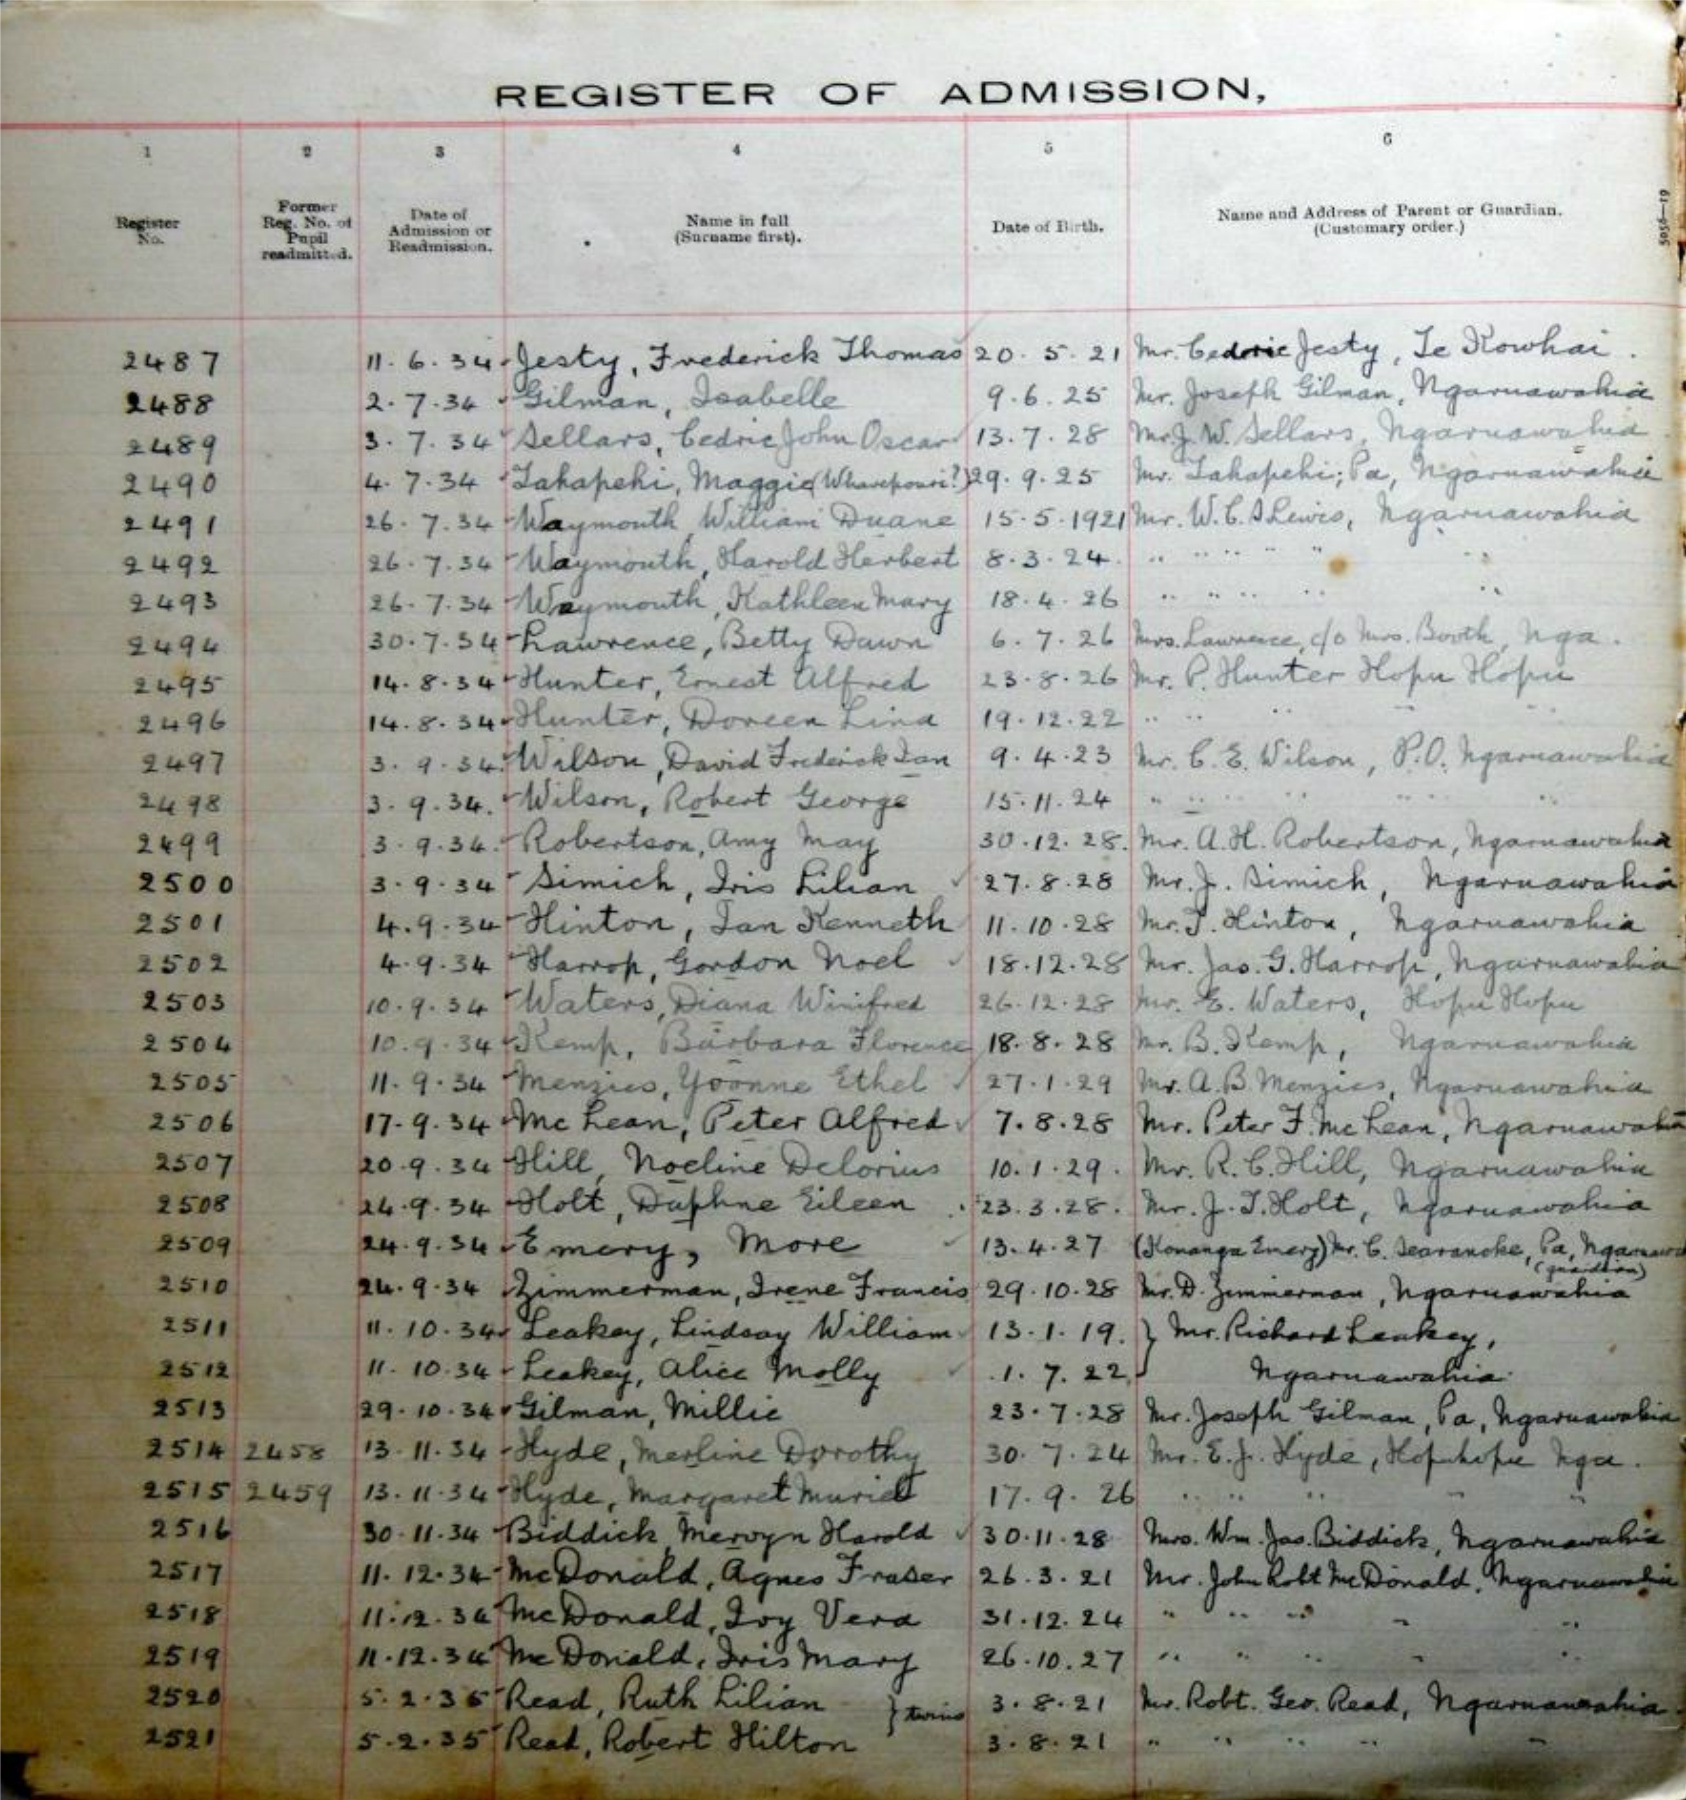 REGISTER OF ADMISSION,
1 2 3 4 5 6
Register No. Former Reg. No. of Pupil readmitted. Date of Admission or Readmission. Name in full (Surname first). Date of Birth. Name and Address of Parent or Guardian. (Customary order.)
5056—19
2487 11. 6. 34 Jesty, Frederick Thomas 20. 5. 21 Mr. Cedric Jesty, Te Kowhai.
2488 2. 7. 34 Gilman, Isabelle 9. 6. 25 Mr. Joseph Gilman, Ngaruawahia
2489 3. 7. 34 Sellars, Cedric John Oscar 13. 7. 28 Mr. J. W. Sellars, Ngaruawahia
2490 4. 7. 34 Takapehi, Maggie (Wharepouri?) 29. 9. 25 Mr. Takapehi; Pa, Ngaruawahia
2491 26. 7. 34 Waymouth, William Duane 15. 5. 1921 Mr. W. C. Lewis, Ngaruawahia
2492 26. 7. 34 Waymouth, Harold Herbert 8. 3. 24. " " " " " "
2493 26. 7. 34 Waymouth, Kathleen Mary 18. 4. 26 " " " " "
2494 30. 7. 34 Lawrence, Betty Dawn 6. 7. 26 Mrs. Lawrence, c/o Mrs. Booth, Nga.
2495 14. 8. 34 Hunter, Ernest Alfred 23. 8. 26 Mr. P. Hunter Hopu Hopu
2496 14. 8. 34 Hunter, Doreen Lina 19. 12. 22 " " " " "
2497 3. 9. 34. Wilson, David Frederick Ian 9. 4. 23 Mr. C. E. Wilson, P.O. Ngaruawahia
2498 3. 9. 34. Wilson, Robert George 15. 11. 24 " " " " " "
2499 3. 9. 34. Robertson, Amy May 30. 12. 28. Mr. A. H. Robertson, Ngaruawahia
2500 3. 9. 34 Simich, Iris Lilian 27. 8. 28 Mr. J. Simich, Ngaruawahia
2501 4. 9. 34 Hinton, Ian Kenneth 11. 10. 28 Mr. T. Hinton, Ngaruawahia
2502 4. 9. 34 Harrop, Gordon Noel 18. 12. 28 Mr. Jas. G. Harrop, Ngaruawahia
2503 10. 9. 34 Waters, Diana Winifred 26. 12. 28 Mr. E. Waters, Hopu Hopu
2504 10. 9. 34 Kemp, Barbara Florence 18. 8. 28 Mr. B. Kemp, Ngaruawahia
2505 11. 9. 34 Menzies, Yvonne Ethel 27. 1. 29 Mr. A. B Menzies, Ngaruawahia
2506 17. 9. 34 McLean, Peter Alfred 7. 8. 28 Mr. Peter F. McLean, Ngaruawahia
2507 20. 9. 34 Hill, Noeline Delorius 10. 1. 29. Mr. R. C. Hill, Ngaruawahia
2508 24. 9. 34 Holt, Daphne Eileen 23. 3. 28. Mr. J. T. Holt, Ngaruawahia
2509 24. 9. 34 Emery, More 13. 4. 27 (Konanga Emery) Mr. C. Searancke, Pa, Ngaruawa
(guardian)
2510 24. 9. 34 Zimmerman, Irene Francis 29. 10. 28 Mr. D. Zimmerman, Ngaruawahia
2511 11. 10. 34 Leakey, Lindsay William 13. 1. 19. } Mr. Richard Leakey,
2512 11. 10. 34 Leakey, Alice Molly 1. 7. 22 Ngaruawahia
2513 29. 10. 34 Gilman, Millie 23. 7. 28 Mr. Joseph Gilman, Pa, Ngaruawahia
2514 2458 13. 11. 34 Hyde, Merline Dorothy 30. 7. 24 Mr. E. J. Hyde, Hopuhopu Nga.
2515 2459 13. 11. 34 Hyde, Margaret Muriel 17. 9. 26 " " " " "
2516 30. 11. 34 Biddick Mervyn Harold 30. 11. 28 Mrs. Wm. Jas. Biddick, Ngaruawahia
2517 11. 12. 34 McDonald, Agnes Fraser 26. 3. 21 Mr. John Robt McDonald, Ngaruawahia
2518 11. 12. 34 McDonald, Ivy Vera 31. 12. 24 " " " " "
2519 11. 12. 34 McDonald, Iris Mary 26. 10. 27 " " " " "
2520 5. 2. 35 Read, Ruth Lilian } twins 3. 8. 21 Mr. Robt. Geo. Read, Ngaruawahia.
2521 5. 2. 35 Read, Robert Hilton 3. 8. 21 " " " " "